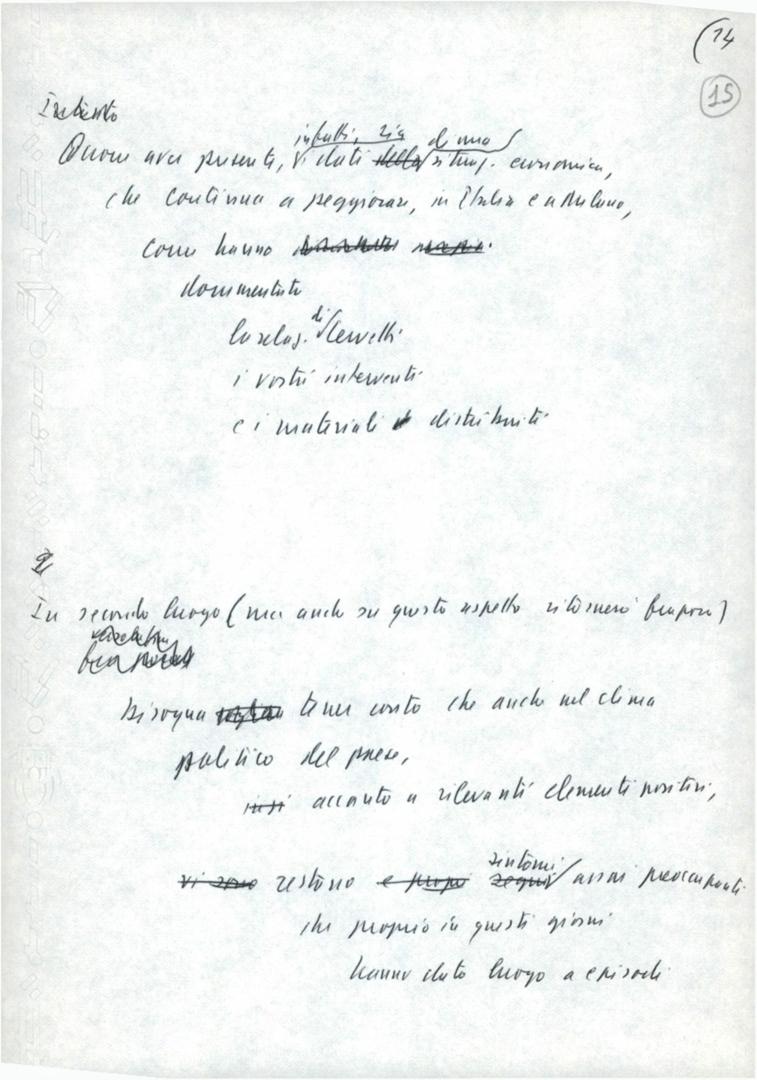 (14
15
Intanto
infatti, sia di una
Dovete aver presente, i dati della situaz. economica,
che continua a peggiorare, in Italia e a Milano,
come hanno
documentato
la relaz. di Cervetti
i vostri interventi
e i materiali distribuiti
In secondo luogo (ma anche su questo aspetto ritornerò
bisogna tener conto che anche nel clima
politico del paese,
accanto a rilevanti elementi positivi,
sintomi
vi sono restano e propri segni assai preoccupanti
che proprio in questi giorni
hanno dato luogo a episodi